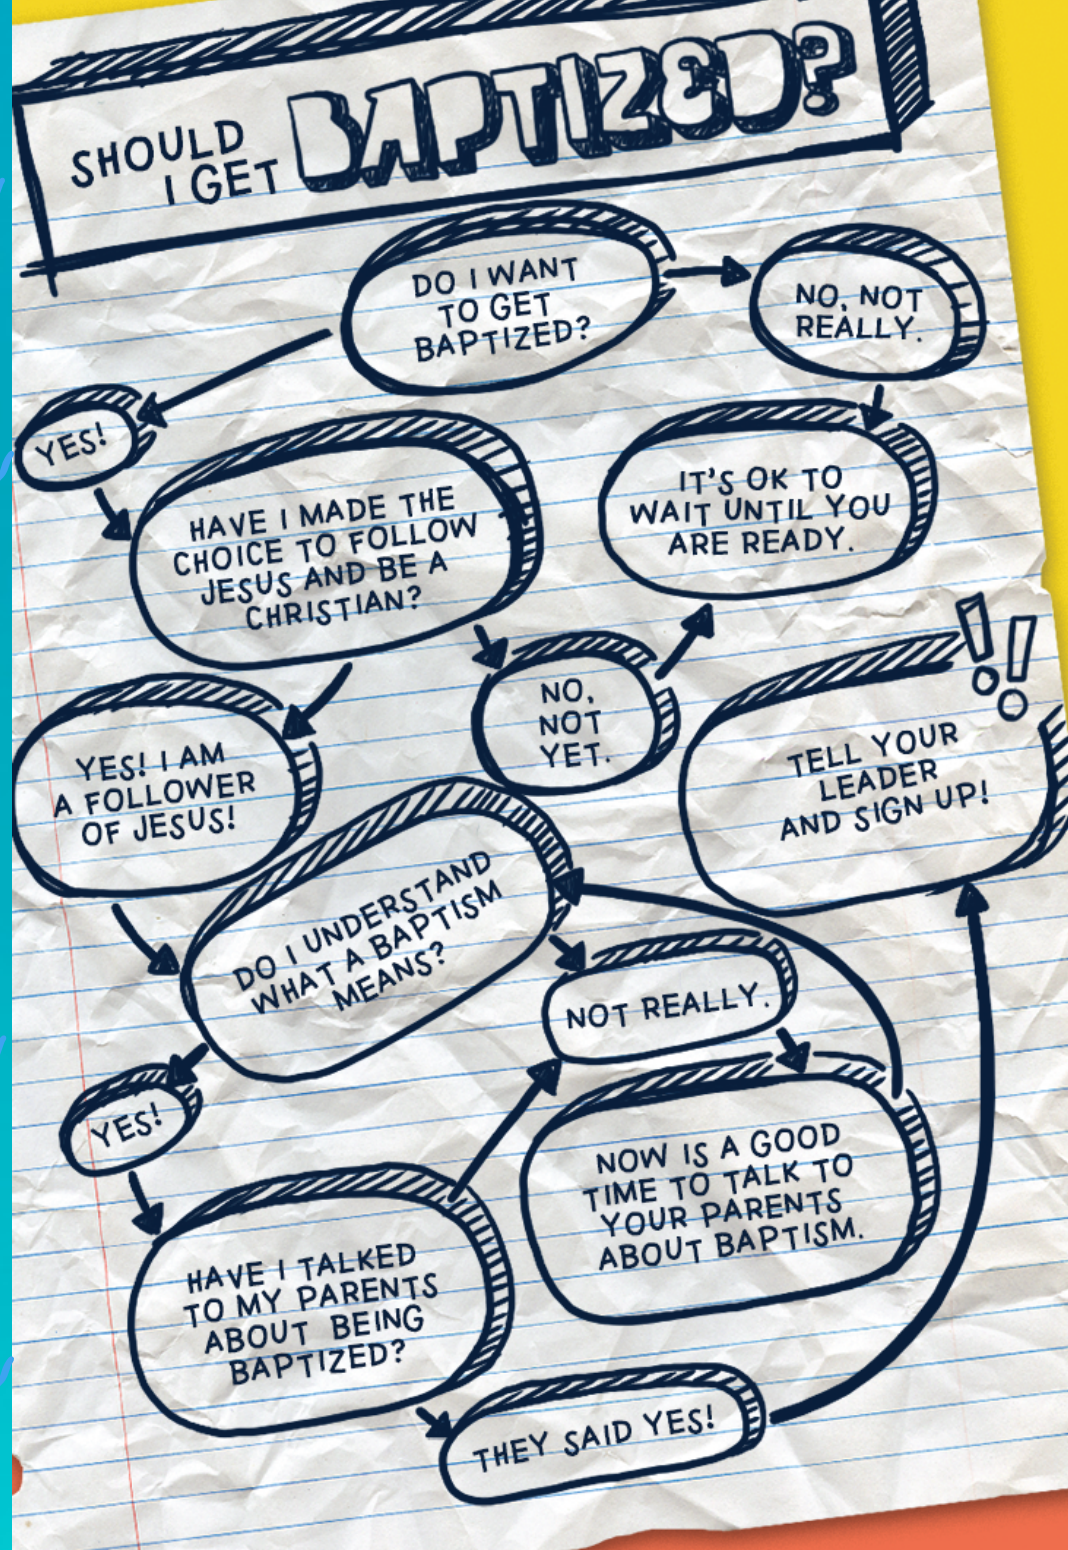 SHOULD
I GET
BAPTIZED?
DO I WANT
TO GET
BAPTIZED?
NO, NOT
REALLY.
YES!
IT'S OK TO
WAIT UNTIL YOU
ARE READY.
HAVE I MADE THE
CHOICE TO FOLLOW
JESUS AND BE A
CHRISTIAN?
NO,
NOT
YET.
YES! I AM
A FOLLOWER
OF JESUS!
!!
TELL YOUR
LEADER
AND SIGN UP!
DO I UNDERSTAND
WHAT A BAPTISM
MEANS?
NOT REALLY.
YES!
NOW IS A GOOD
TIME TO TALK TO
YOUR PARENTS
ABOUT BAPTISM.
HAVE I TALKED
TO MY PARENTS
ABOUT BEING
BAPTIZED?
THEY SAID YES!